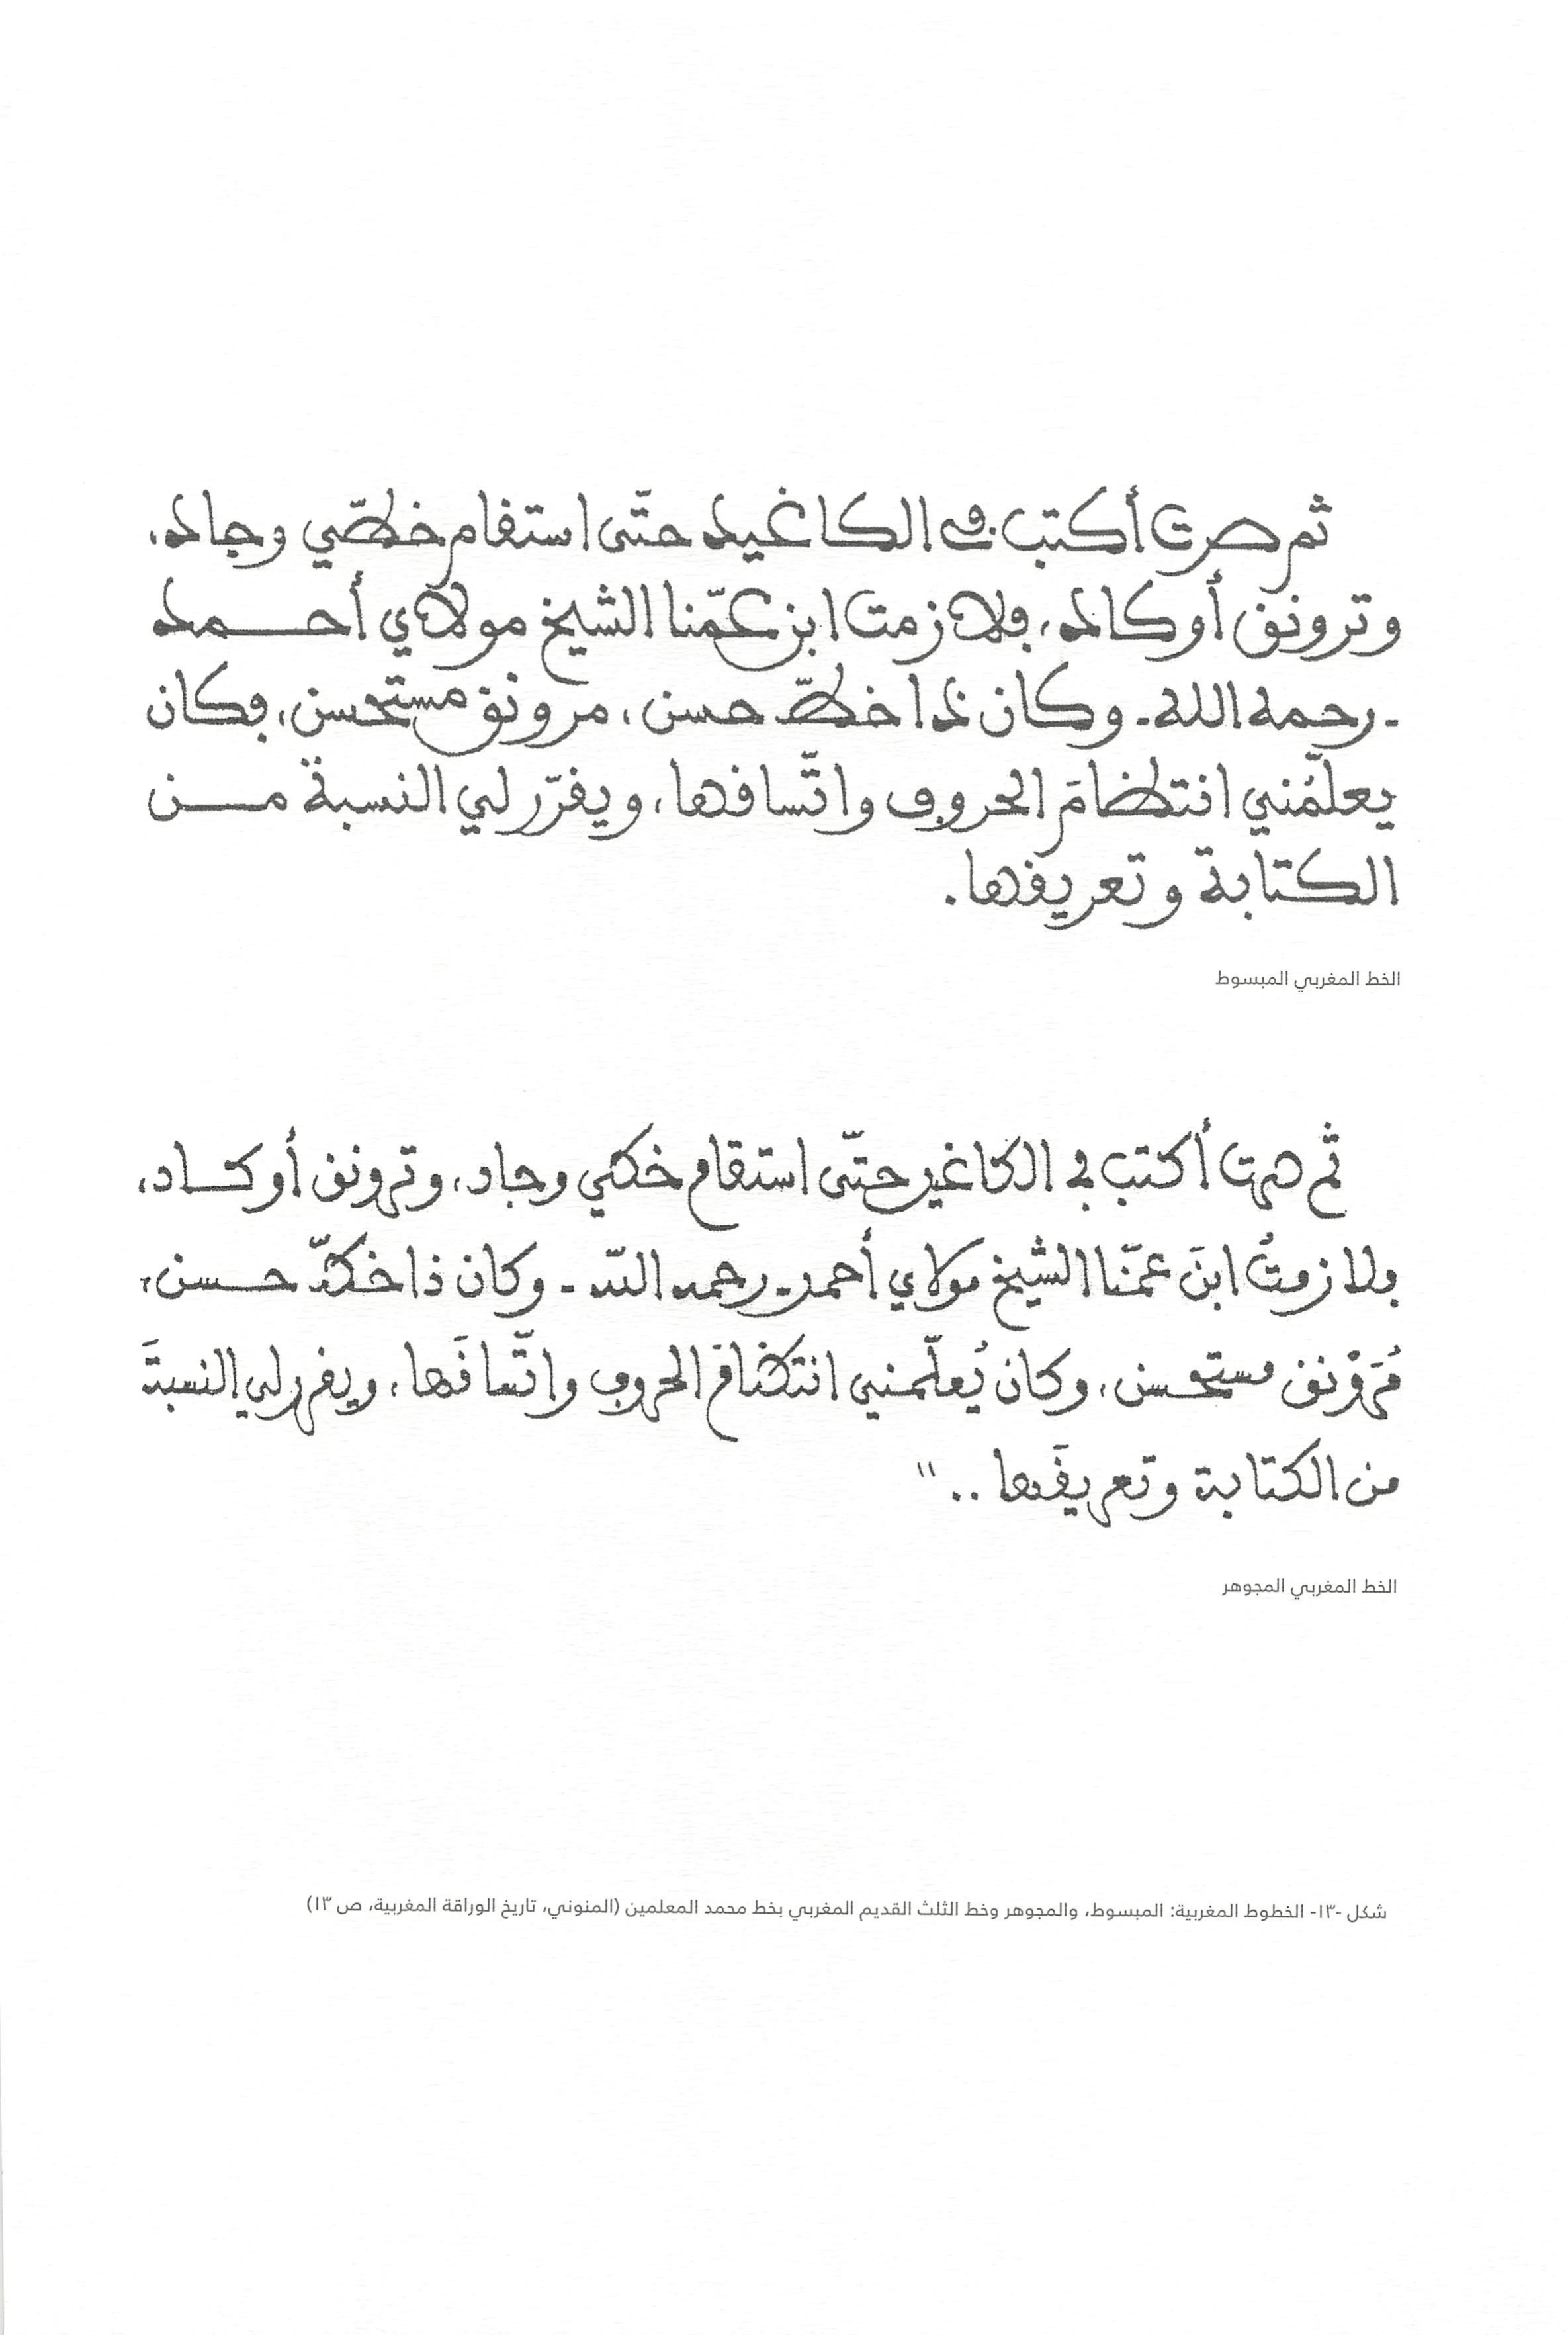 ثم صرت أكتب في الكاغيد حتّى استقام خطّي وجاد،
وترونق أوكاد، فلازمت ابن عمّنا الشيخ مولاي أحمد
-رحمه الله- وكان ذا خطّ حسن، مرونق مستحسن، فكان
يعلّمُني انتظامَ الحروف واتّساقها، ويقرّر لي النسبة من
الكتابة وتعريفها.
الخط المغربي المبسوط
ثم صرت أكتب في الكاغيد حتّى استقام خطي وجاد، وترونق أوكاد،
فلازمتُ ابنَ عمّنا الشيخ مولاي أحمد -رحمه الله- وكان ذا خطّ حسن،
مُرَوْنق مستحسن، وكان يُعلّمني انتظام الحروف واتّساقَها، ويقرر لي النسبةَ
من الكتابة وتعريفَها .. "
الخط المغربي المجوهر
شكل -١٣- الخطوط المغربية: المبسوط، والمجوهر وخط الثلث القديم المغربي بخط محمد المعلمين (المنوني، تاريخ الوراقة المغربية، ص ١٣)